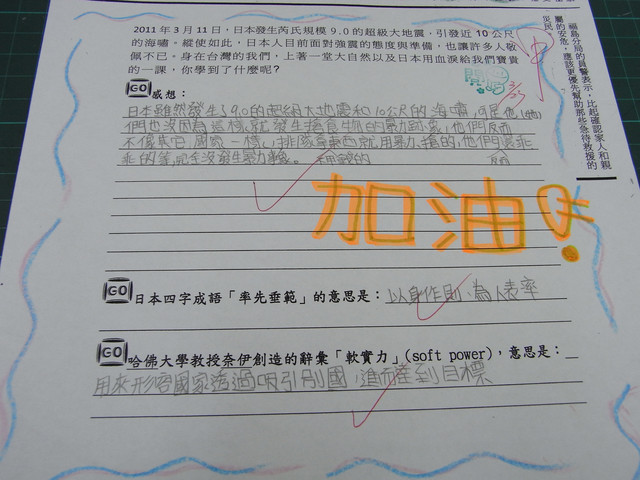 2011 年 3 月 11 日，日本發生芮氏規模 9.0 的超級大地震，引發近 10 公尺
的海嘯。縱使如此，日本人目前面對強震的態度與準備，也讓許多人敬
佩不已。身在台灣的我們，上著一堂大自然以及日本用血淚給我們寶貴
的一課，你學到了什麼呢？
GO 感想：
日本雖然發生了9.0的超級大地震和10公尺的海嘯，可是他
們也沒因為這樣就發生搶食物的暴力現象，他們反而
不像其它國家一樣，排隊拿東西就用暴力、搶的，他們還乖
乖的等，完全沒發生暴力
加油！
GO 日本四字成語「率先垂範」的意思是：以身作則、為人表率
GO 哈佛大學教授奈伊創造的辭彙「軟實力」(soft power)，意思是：
用來形容國家透過吸引別國，進而達到目標
福島分局的員警表示，比起確認家人和親
屬的安危，應該更優先幫助那些急待救援的
災民